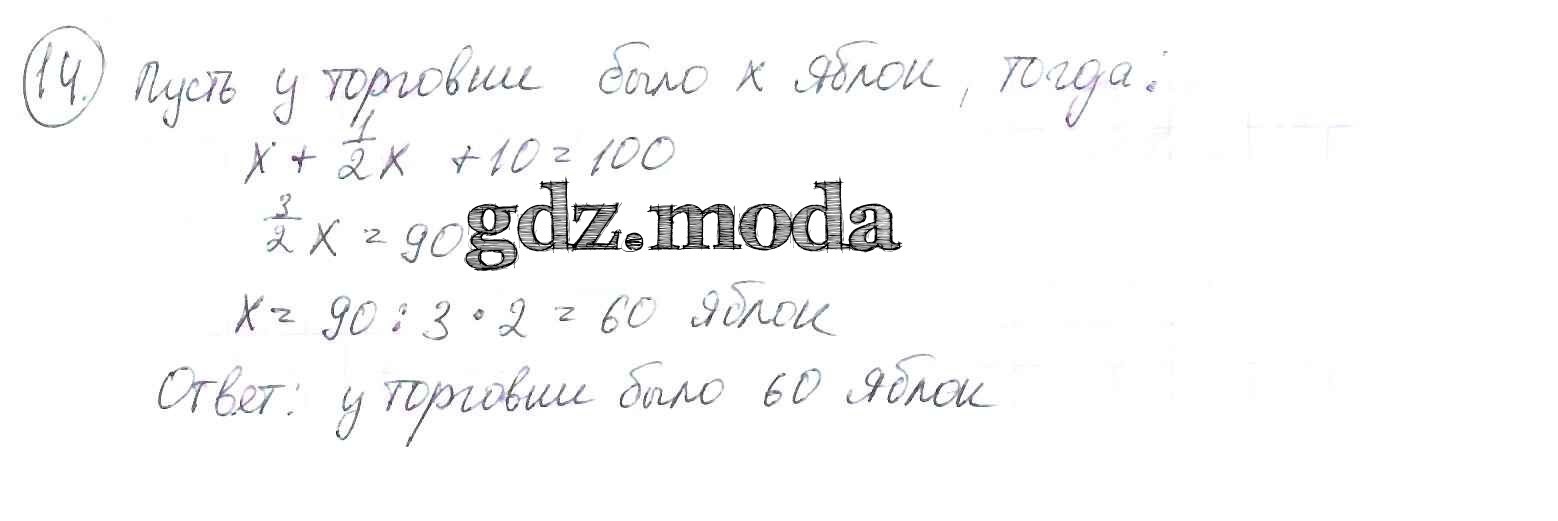 14. Пусть у торговки было x яблок, тогда:
x + 1/2 x + 10 = 100
3/2 x = 90
gdz.moda
x = 90 : 3 · 2 = 60 яблок
Ответ: у торговки было 60 яблок